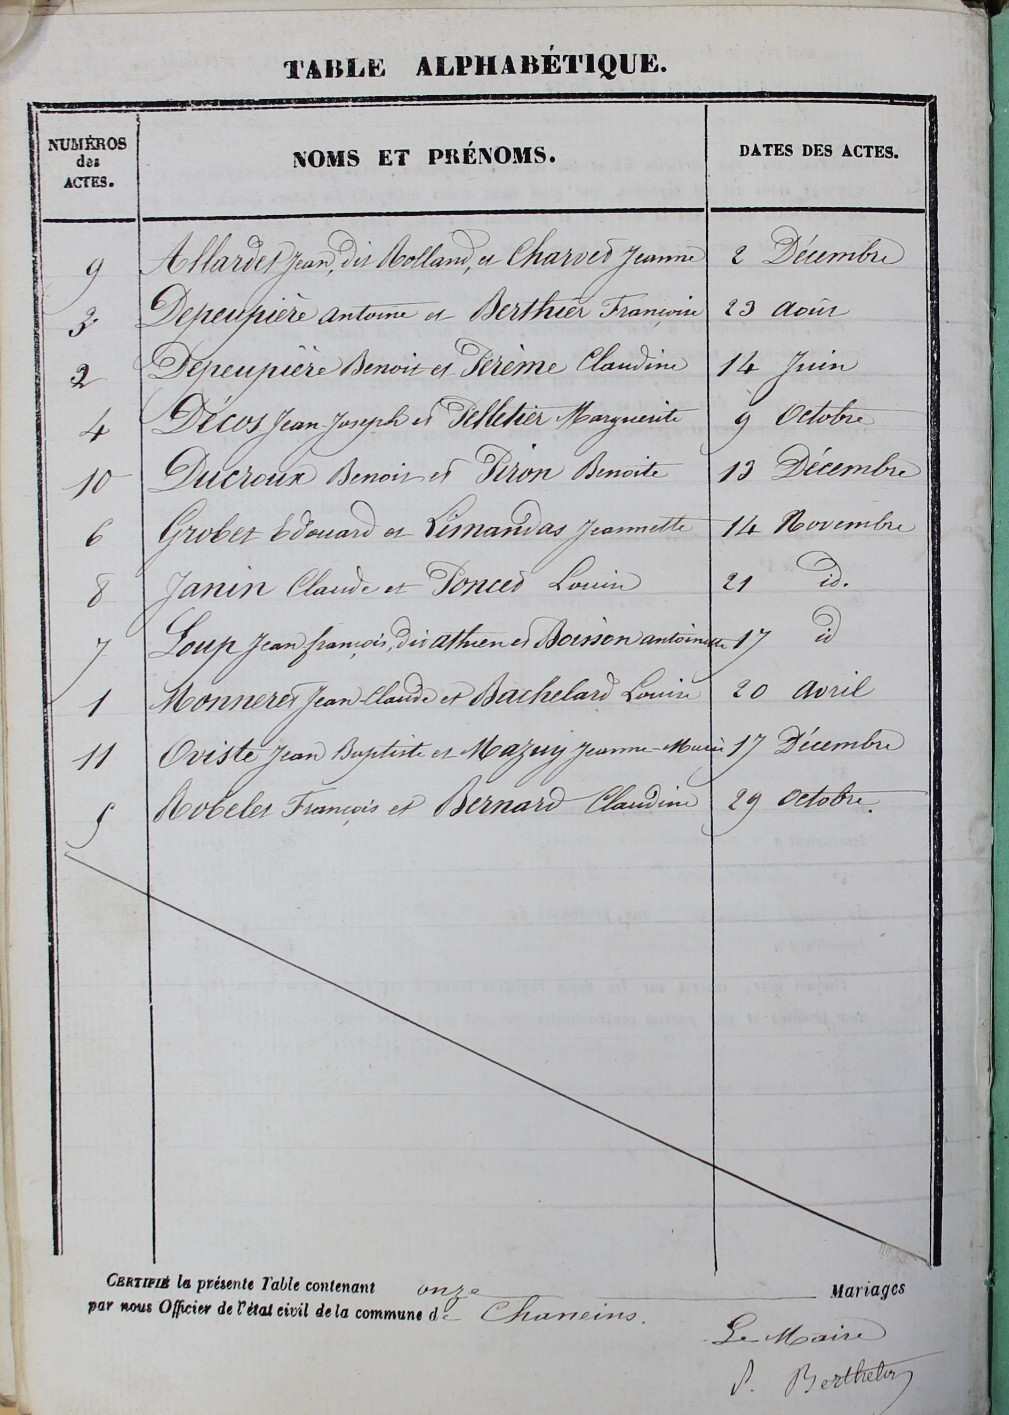 TABLE ALPHABÉTIQUE.
NUMÉROS des ACTES. NOMS ET PRÉNOMS. DATES DES ACTES.
9 Allardet Jean, dit Rolland, et Charvet Jeanne 2 Décembre
3 Depeupière antoine et Berthier Françoise 23 août
2 Depeupière Benoit et Ferème Claudine 14 Juin
4 Décos Jean-Joseph et Pelletier Marguerite 9 Octobre
10 Ducroux Benoit et Piron Benoite 13 Décembre
6 Grobet Edouard et Limandas Jeannette 14 Novembre
8 Janin Claude et Poncet Louise 21 id.
7 Loup Jean françois, dit athien et Boisson antoinette 17 id
1 Monneret Jean-Claude et Bachelard Louise 20 avril
11 Oviste Jean Baptiste et Mazuy Jeanne-Marie 17 Décembre
5 Robelet François et Bernard Claudine 29 octobre.
CERTIFIÉ la présente Table contenant onze Mariages
par nous Officier de l'état civil de la commune de Chaneins.
Le Maire